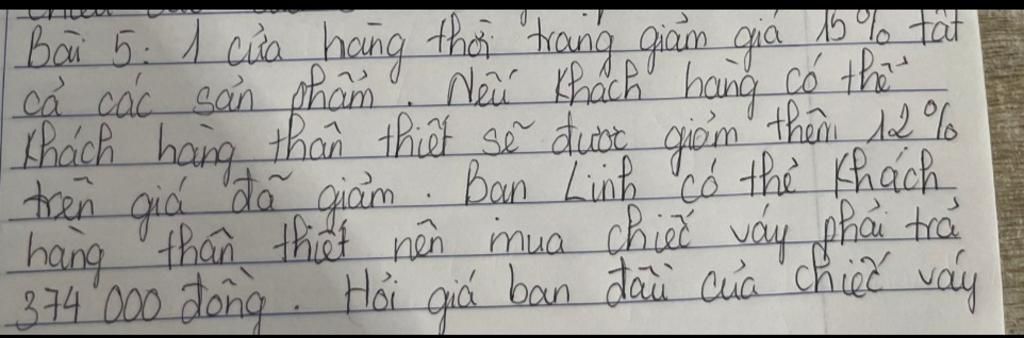 Bài 5: 1 cửa hàng thời trang giảm giá 15% tất
cả các sản phẩm. Nếu khách hàng có thẻ
khách hàng thân thiết sẽ được giảm thêm 12%
trên giá đã giảm. Bạn Linh có thẻ khách
hàng thân thiết nên mua chiếc váy phải trả
374 000 đồng. Hỏi giá ban đầu của chiếc váy